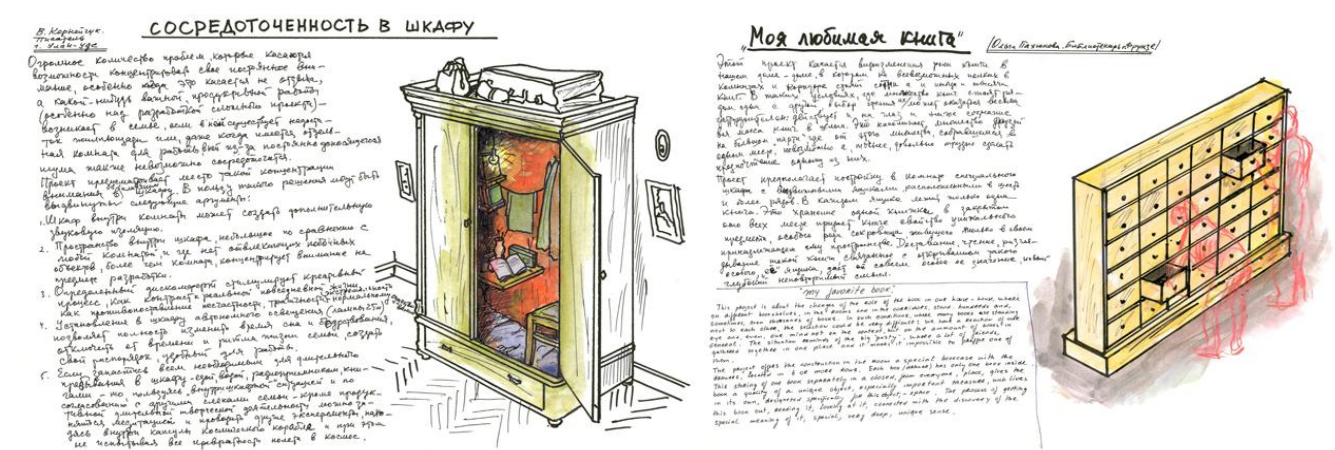 В. Корнейчук.
Писатель
г. Улан-Удэ
СОСРЕДОТОЧЕННОСТЬ В ШКАФУ
Огромное количество проблем, которые касаются
возможности концентрировать свое постоянное вни-
мание, особенно когда это касается не отдыха,
а какой-нибудь важной, продуктивной работы
(особенно над разработкой сложного проекта) –
возникает в семье, если в ней существует недоста-
ток жилплощади или, даже когда имеется отдель-
ная комната для работы, в ней из-за постоянно доносящегося
шума также невозможно сосредоточиться.
Проект предусматривает место такой концентрации
внимания в шкафу. В пользу такого решения могут быть
выдвинуты следующие аргументы:
1. Шкаф внутри комнаты может создать дополнительную
звуковую изоляцию.
2. Пространство внутри шкафа, небольшое по сравнению с
любой комнатой и где нет отвлекающих побочных
объектов, более чем комната, концентрирует внимание на
предмете разработки.
3. Определенный дискомфорт стимулирует креативный
процесс, как контраст к реальной повседневной жизни,
как противопоставление
4. Установление в шкафу автономного освещения (лампы, свечи)
позволяет полностью изменить время сна и бодрствования,
отключить от времени и ритма жизни семьи, создать
свой распорядок, удобный для работы.
5. Если запастись всем необходимым для длительного
пребывания в шкафу – едой, водой, радиоприемником, кни-
гами – то, пользуясь внутришкафной ситуацией и по
согласованию с другими членами семьи – кроме продук-
тивной длительной творческой деятельности можно за-
няться медитацией и проводить другие эксперименты, нахо-
дясь внутри капсулы космического корабля и при этом
не испытывая все превратности полета в космос.
"Моя любимая книга"
/Ольга Пахомова. Библиотекарь. Фрунзе/
Этот проект касается видоизменения роли книги в
нашем доме – доме, в котором на всевозможных полках в
комнатах и коридоре стоят сотни а и иногда и тысячи
книг. В таких условиях, где множество книг стоят ря-
дом одна с другой, выбор зрения может оказаться весьма
затруднителен: действует и на глаз и на наше сознание
вся масса книг в целом. Это напоминает множество друзей
на большой party, где от этого множества, собравшегося в
одном месте, невозможно и, точнее, довольно трудно сделать
предпочтение одному из них.
Проект предполагает постройку в комнате специального
шкафа с выдвижными ящиками, расположенными в шесть
и более рядов. В каждом ящике лежит только одна
книга. Это хранение одной книжки в закрытом
ото всех месте придает книге свойство уникального
предмета, особого рода сокровища живущего только в своем
принадлежащем ему пространстве. Доставание, чтение, разгля-
дывание такой книги связанное с открыванием такого
особого, её ящика, дает ей совсем особое её значение, новый
глубокий неповторимый смысл.
"my favorite book"
This project is about the changes of the role of the book in our house – house, where
on different bookshelves, in the rooms and in the corridor, are stored hundreds and,
sometimes, even thousands of books. In such conditions, where many books are standing
next to each other, the selection could be very difficult: we had a reaction of our
eye and, even, our mind not on the context, but on the ammount of books in
general. The situation reminds of the big party, where a lot of friends,
gathered together in one place and it would be impossible to prefer one of
them.
The project offers the construction in the room a special bookcase with the
drawers, located in 6 or more rows. Each box (drawer) has only one book inside.
This storing of one book separately in a closed from everyone place, gives the
book a quality of a unique object, especially important treasure, and lives
in its own, designated specifically for this object – space. The process of getting
this book out, reading it, looking at it, connected with the discovery of the
special meaning of it, special, very deep, unique sense.